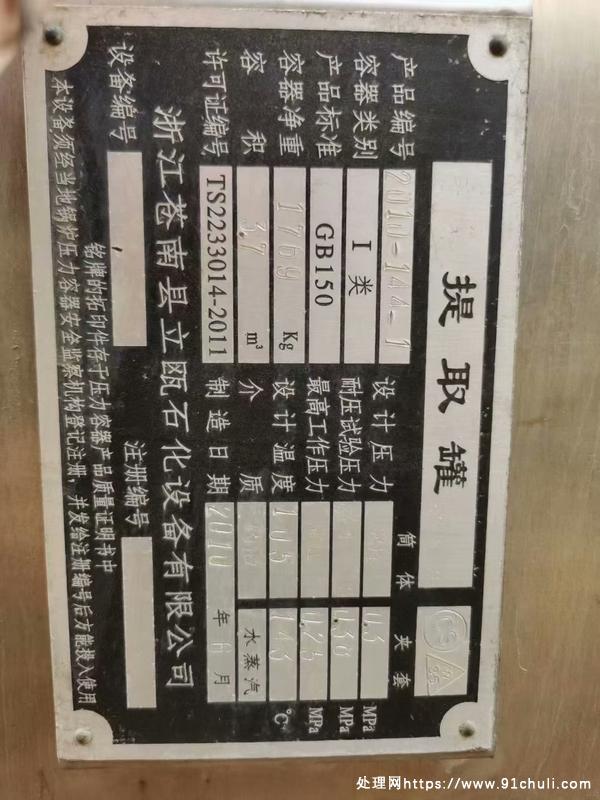 提取罐
CS
筒体 夹套
产品编号 2010-144-1 设计压力 0.3 MPa
容器类别 I 类 耐压试验压力 0.38 MPa
产品标准 GB150 最高工作压力 0.25 MPa
容器净重 1769 Kg 设计温度 105 143 ℃
容积 3.7 m³ 介质 水蒸汽
许可证编号 TS2233014-2011 制造日期 2010 年 6 月
浙江苍南县立瓯石化设备有限公司
设备编号 注册编号
铭牌的拓印件存于压力容器产品质量证明书中
本设备须经当地锅炉压力容器安全监察机构登记注册,并发给注册编号后方能投入使用
处理网https://www.91chuli.com